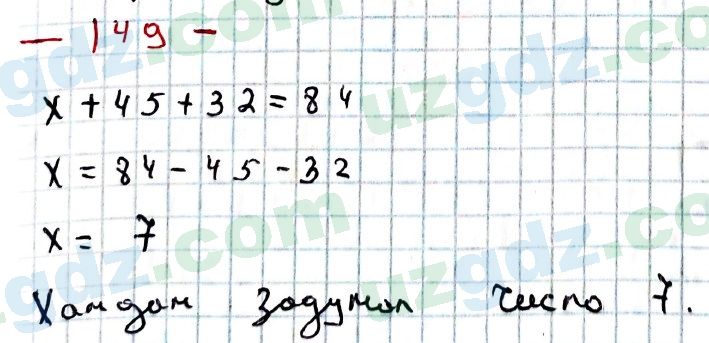 — 149 —
x + 45 + 32 = 84
x = 84 - 45 - 32
x = 7
Хамдам задумал число 7.
uzgdz.com
uzgdz.com
uzgdz.com